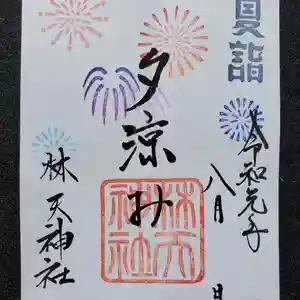 夏詣
令和元年
八月 日
夕涼み
林天
神社
林天神社